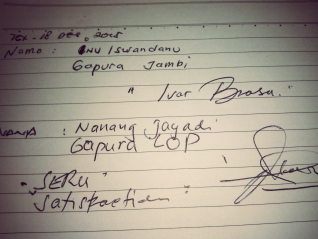 18 Dec, 2015
Nama : Iswandanu
Gapura Jambi
" Ivar Brasa."
Nama : Nanang Jayadi
Gapura LOP
"SERU"
Satisfaction"